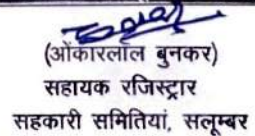 (ओंकारलाल बुनकर)
सहायक रजिस्ट्रार
सहकारी समितियां, सलूम्बर